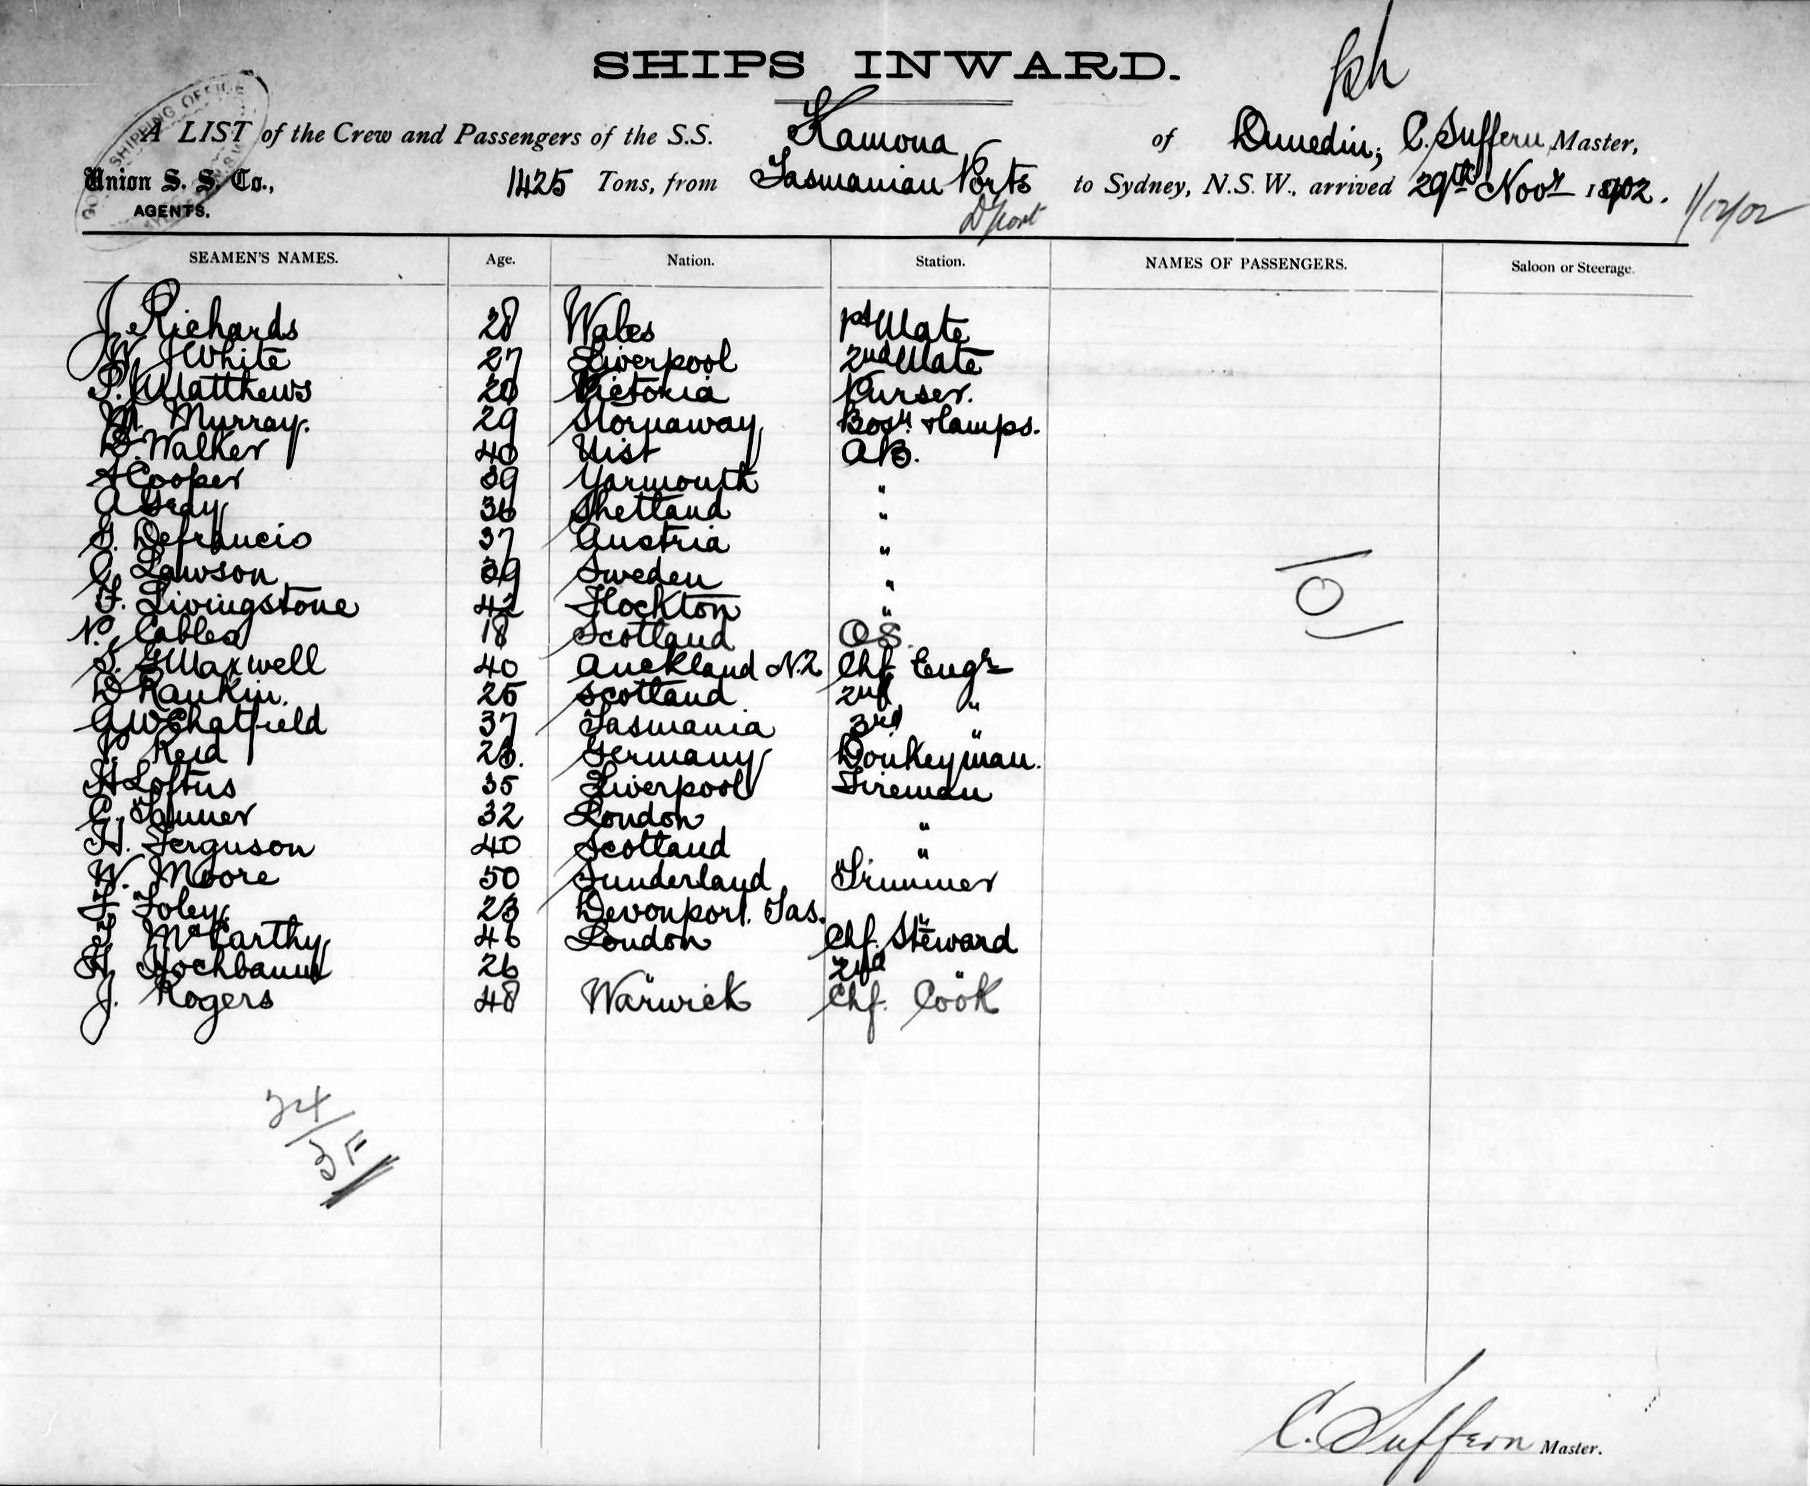 SHIPS INWARD.
A LIST of the Crew and Passengers of the S.S. Kamona of Dunedin, C. Suffern Master,
Union S. S. Co., 1425 Tons, from Tasmanian Ports to Sydney, N.S.W., arrived 29th Novr 1902. 1/12/02
AGENTS. D'port
SEAMEN'S NAMES. Age. Nation. Station. NAMES OF PASSENGERS. Saloon or Steerage.
J. Richards 28 Wales 1st Mate
W J White 27 Liverpool 2nd Mate
Matthews Victoria Purser.
M. Murray. 29 Stornaway Bosn & Lamps.
D. Walker 40 Uist AB.
A Cooper 39 Yarmouth "
A Gray 36 Shetland "
G. Defrancis 37 Austria "
C. Lawson 39 Sweden "
F. Livingstone 42 Hockton "
N. Cables 18 Scotland OS.
S. G Maxwell 40 Auckland N.Z Chf Engr
D Rankin. 25 Scotland 2nd "
G W Chatfield 37 Tasmania 3rd "
Reid Germany Donkeyman.
H Loftus 35 Liverpool Fireman
C. Tanner 32 London "
H. Ferguson 40 Scotland "
W. Moore 50 Sunderland Trimmer
F Foley 23 Devonport. Tas. "
McCarthy 46 London Chf. Steward
H. Hochbaum 26 " 2nd "
J. Rogers 48 Warwick Chf. Cook
101
24
C. Suffern Master.